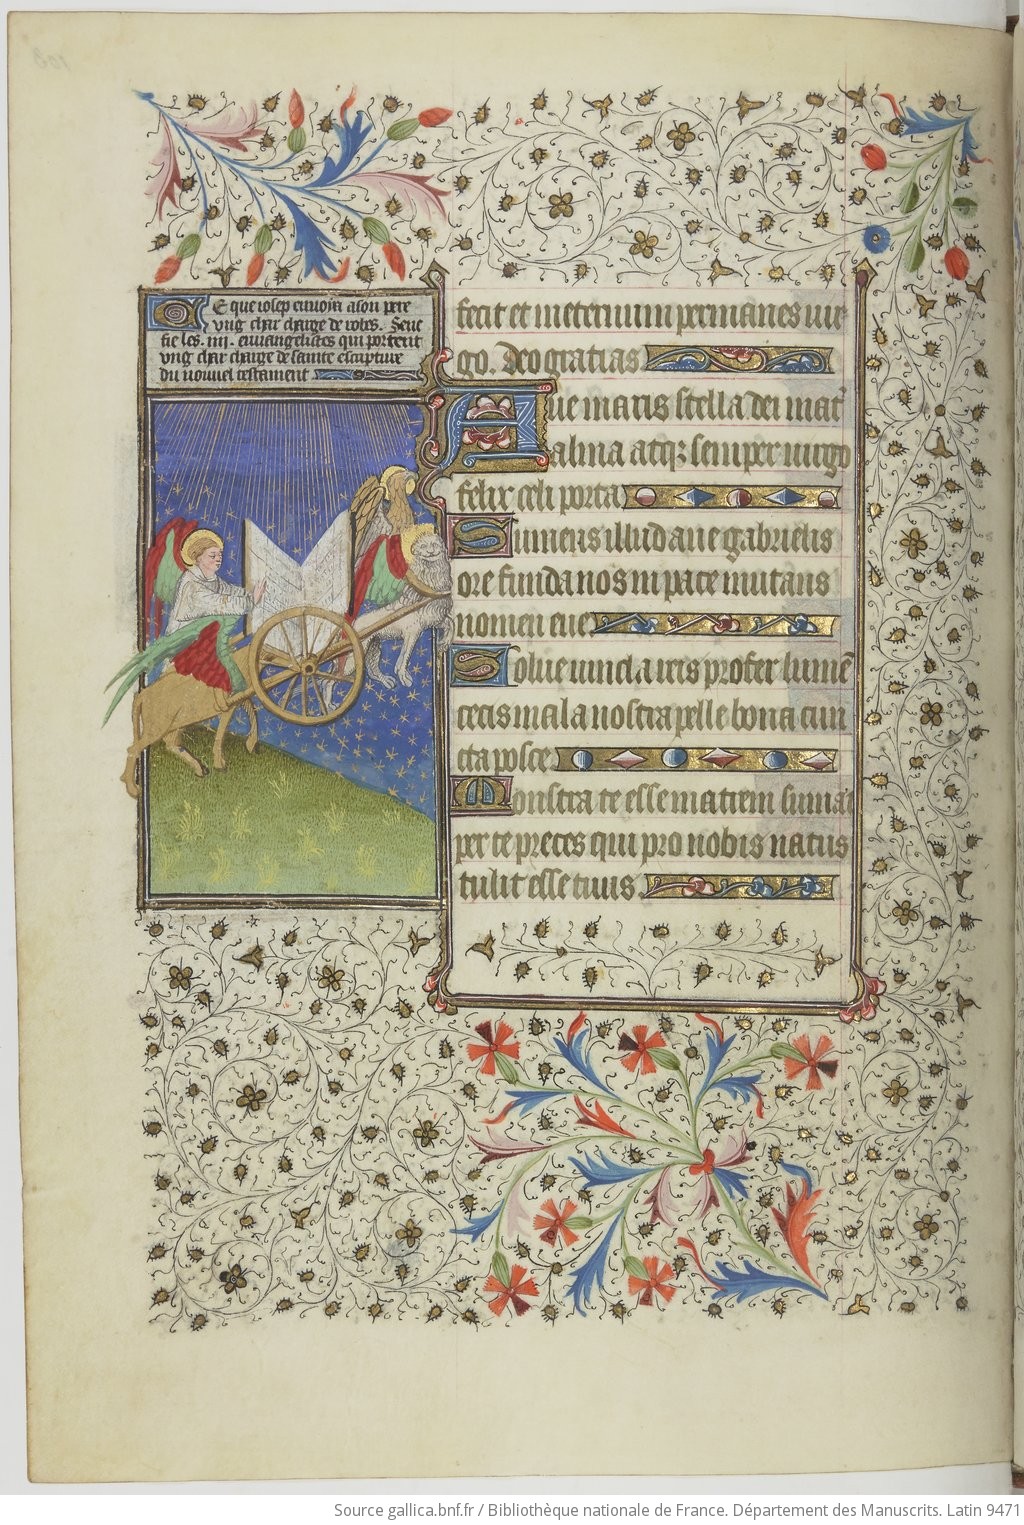 Ce que iosep enuoia a son pere
vng char charge de robes. Sene
fie les .iiij. euuangelistes qui portent
vng char charge de sainte escripture
du nouuel testament
fecit et in eternum permanes uir
go. Deo gratias
Aue maris stella dei mat
alma atq; semper uirgo
felix celi porta
Sumens illud aue gabrielis
ore funda nos in pace mutans
nomen eue
Solue uincla reis profer lumē
cecis mala nostra pelle bona cun
cta posce
Monstra te esse matrem sumat
per te preces qui pro nobis natus
tulit esse tuus
Source gallica.bnf.fr / Bibliothèque nationale de France. Département des Manuscrits. Latin 9471